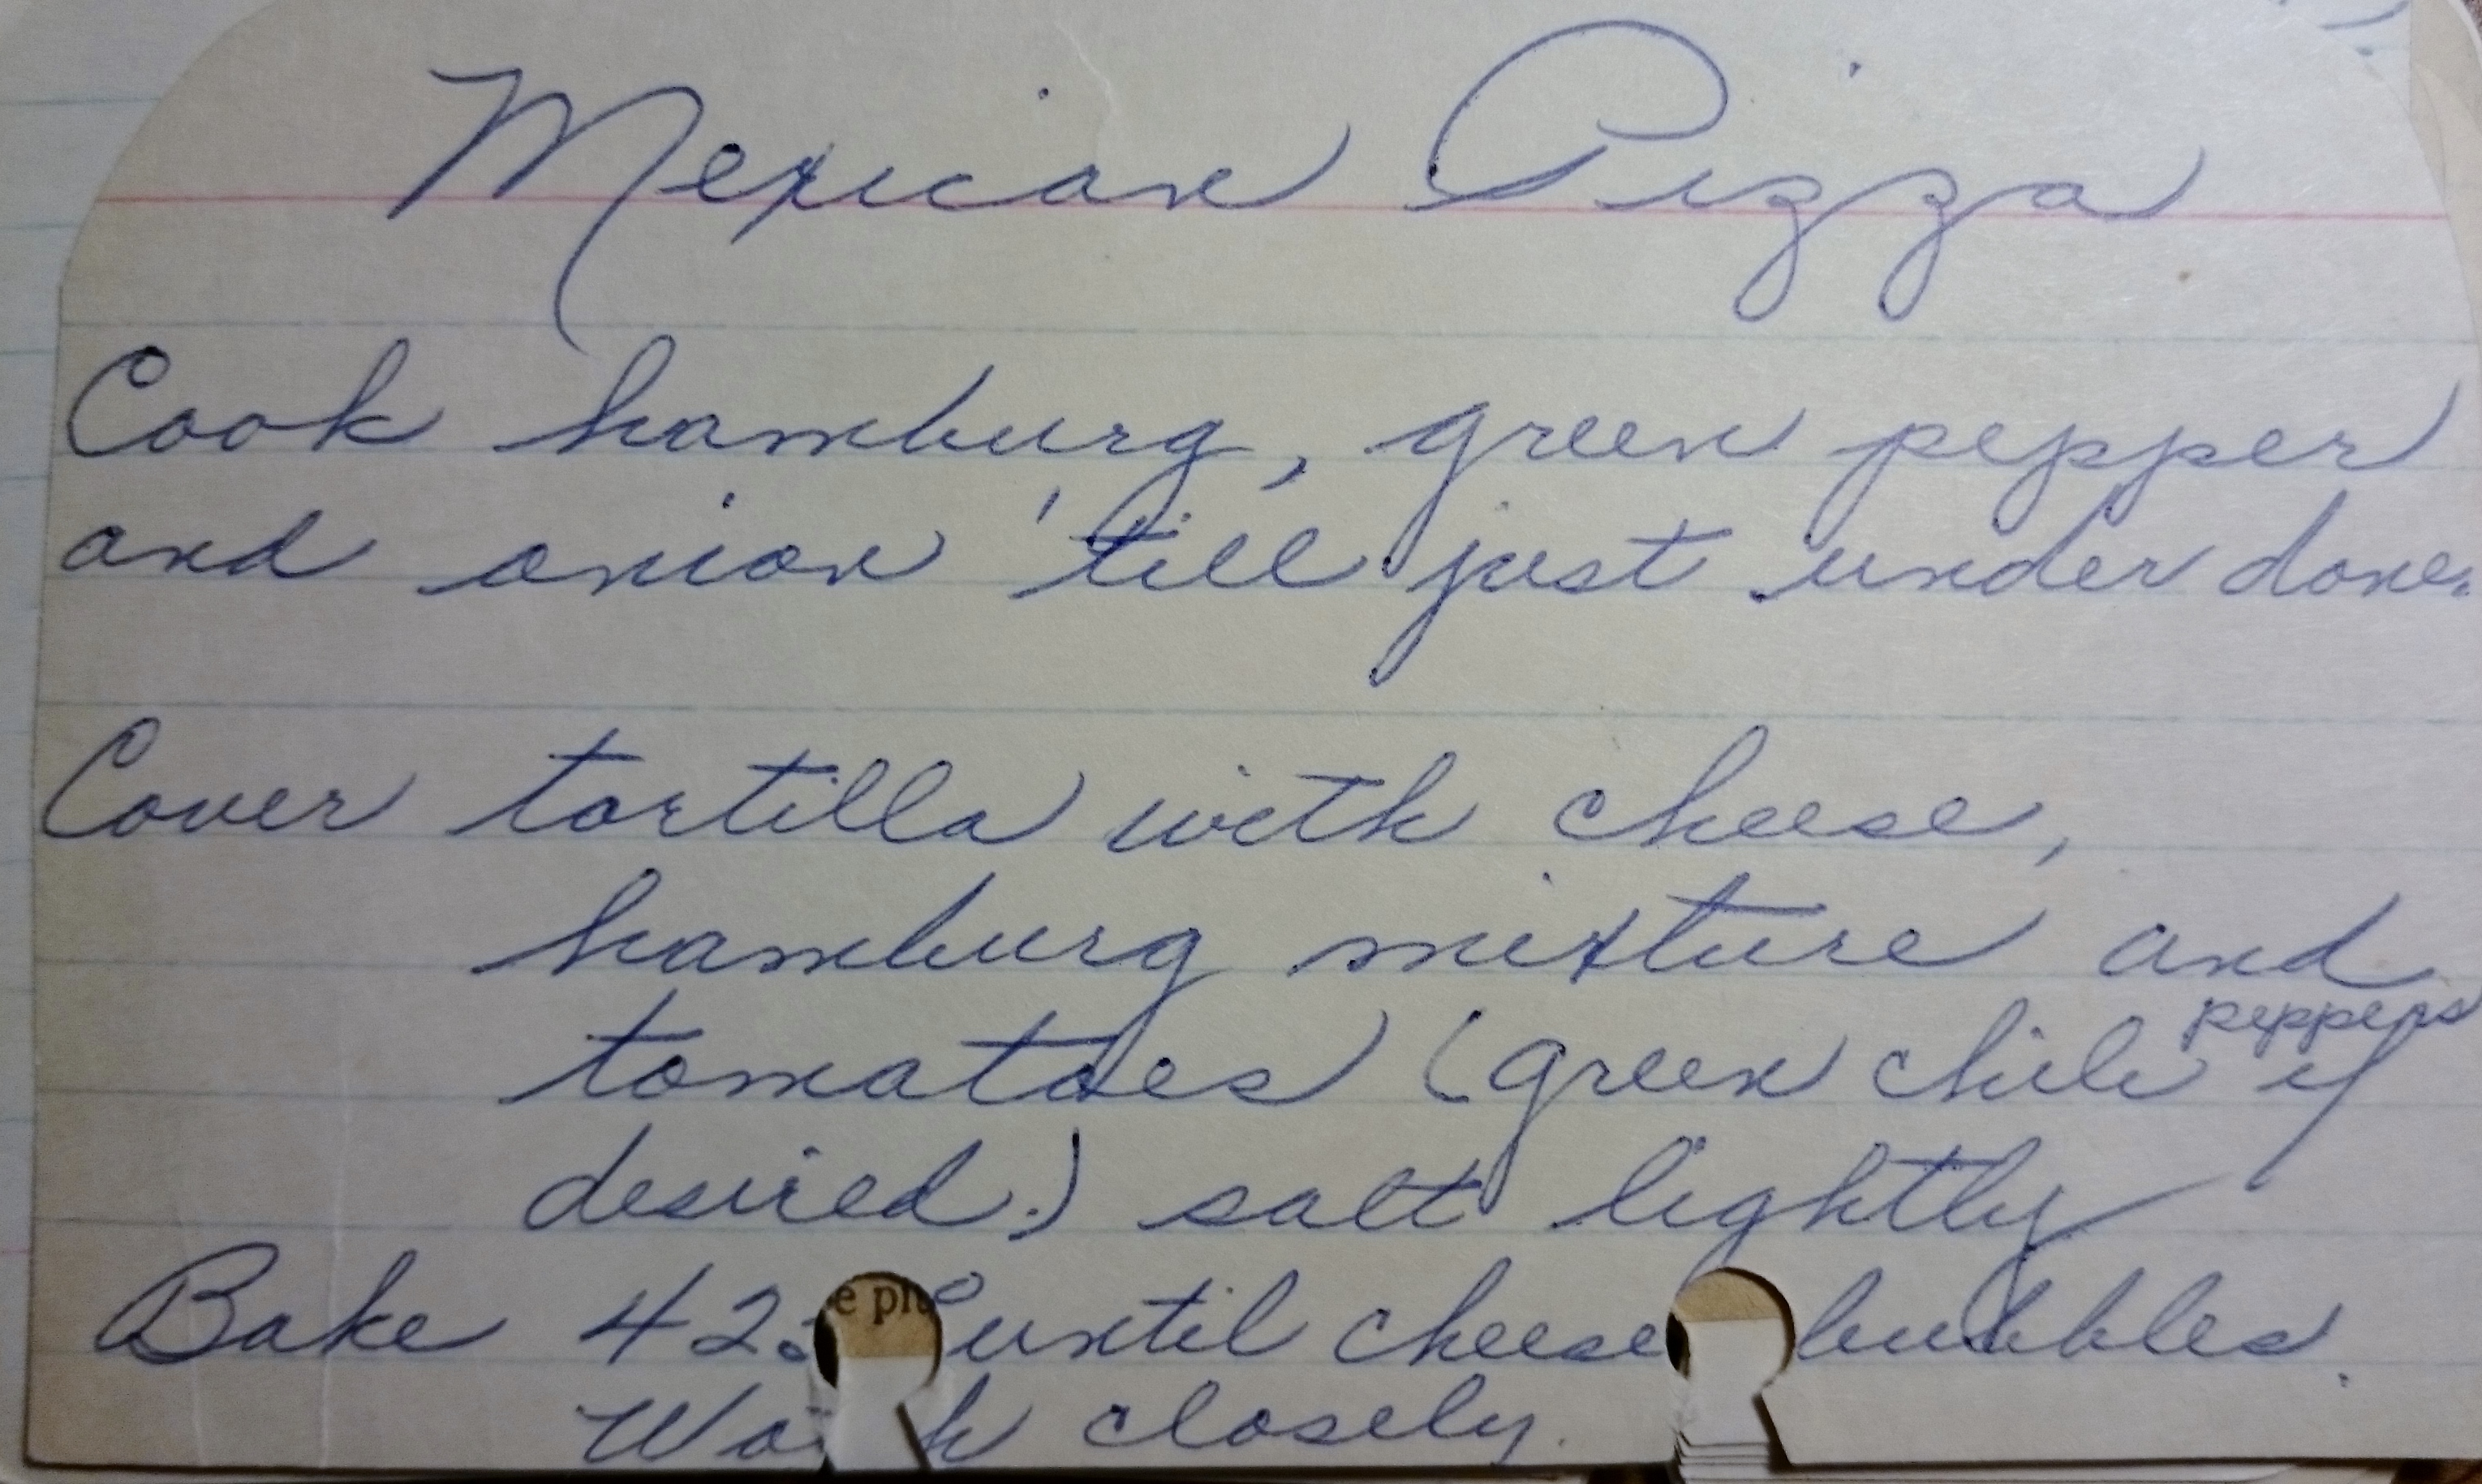 Mexican Pizza
Cook hamburg, green pepper
and onion 'till just under done.
Cover tortilla with cheese,
hamburg mixture and
tomatoes (green chili peppers if
desired.) salt lightly
Bake until cheese bubbles.
closely.